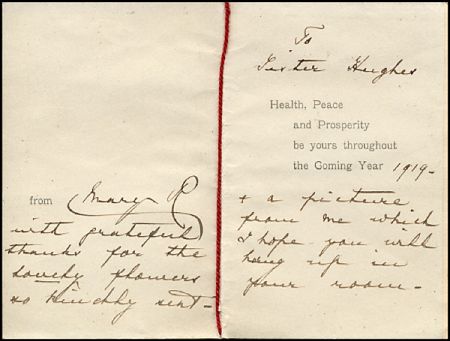 from Mary R
with grateful
thanks for the
lovely flowers
so kindly sent -
To
Sister Hughes
Health, Peace
and Prosperity
be yours throughout
the Coming Year 1919 -
+ a picture
from me which
I hope you will
hang up in
your room -